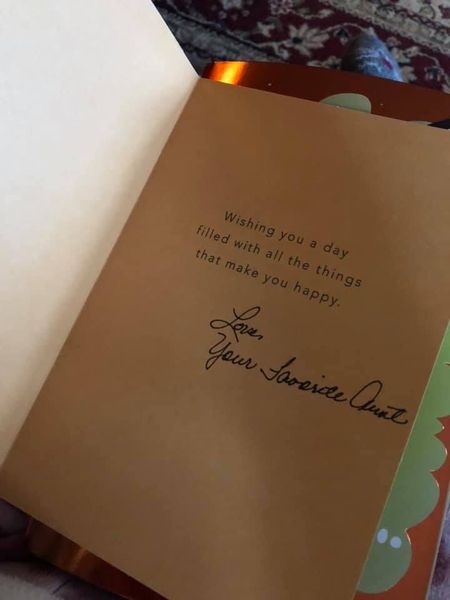 Wishing you a day
filled with all the things
that make you happy.
Love,
Your Favorite Aunt